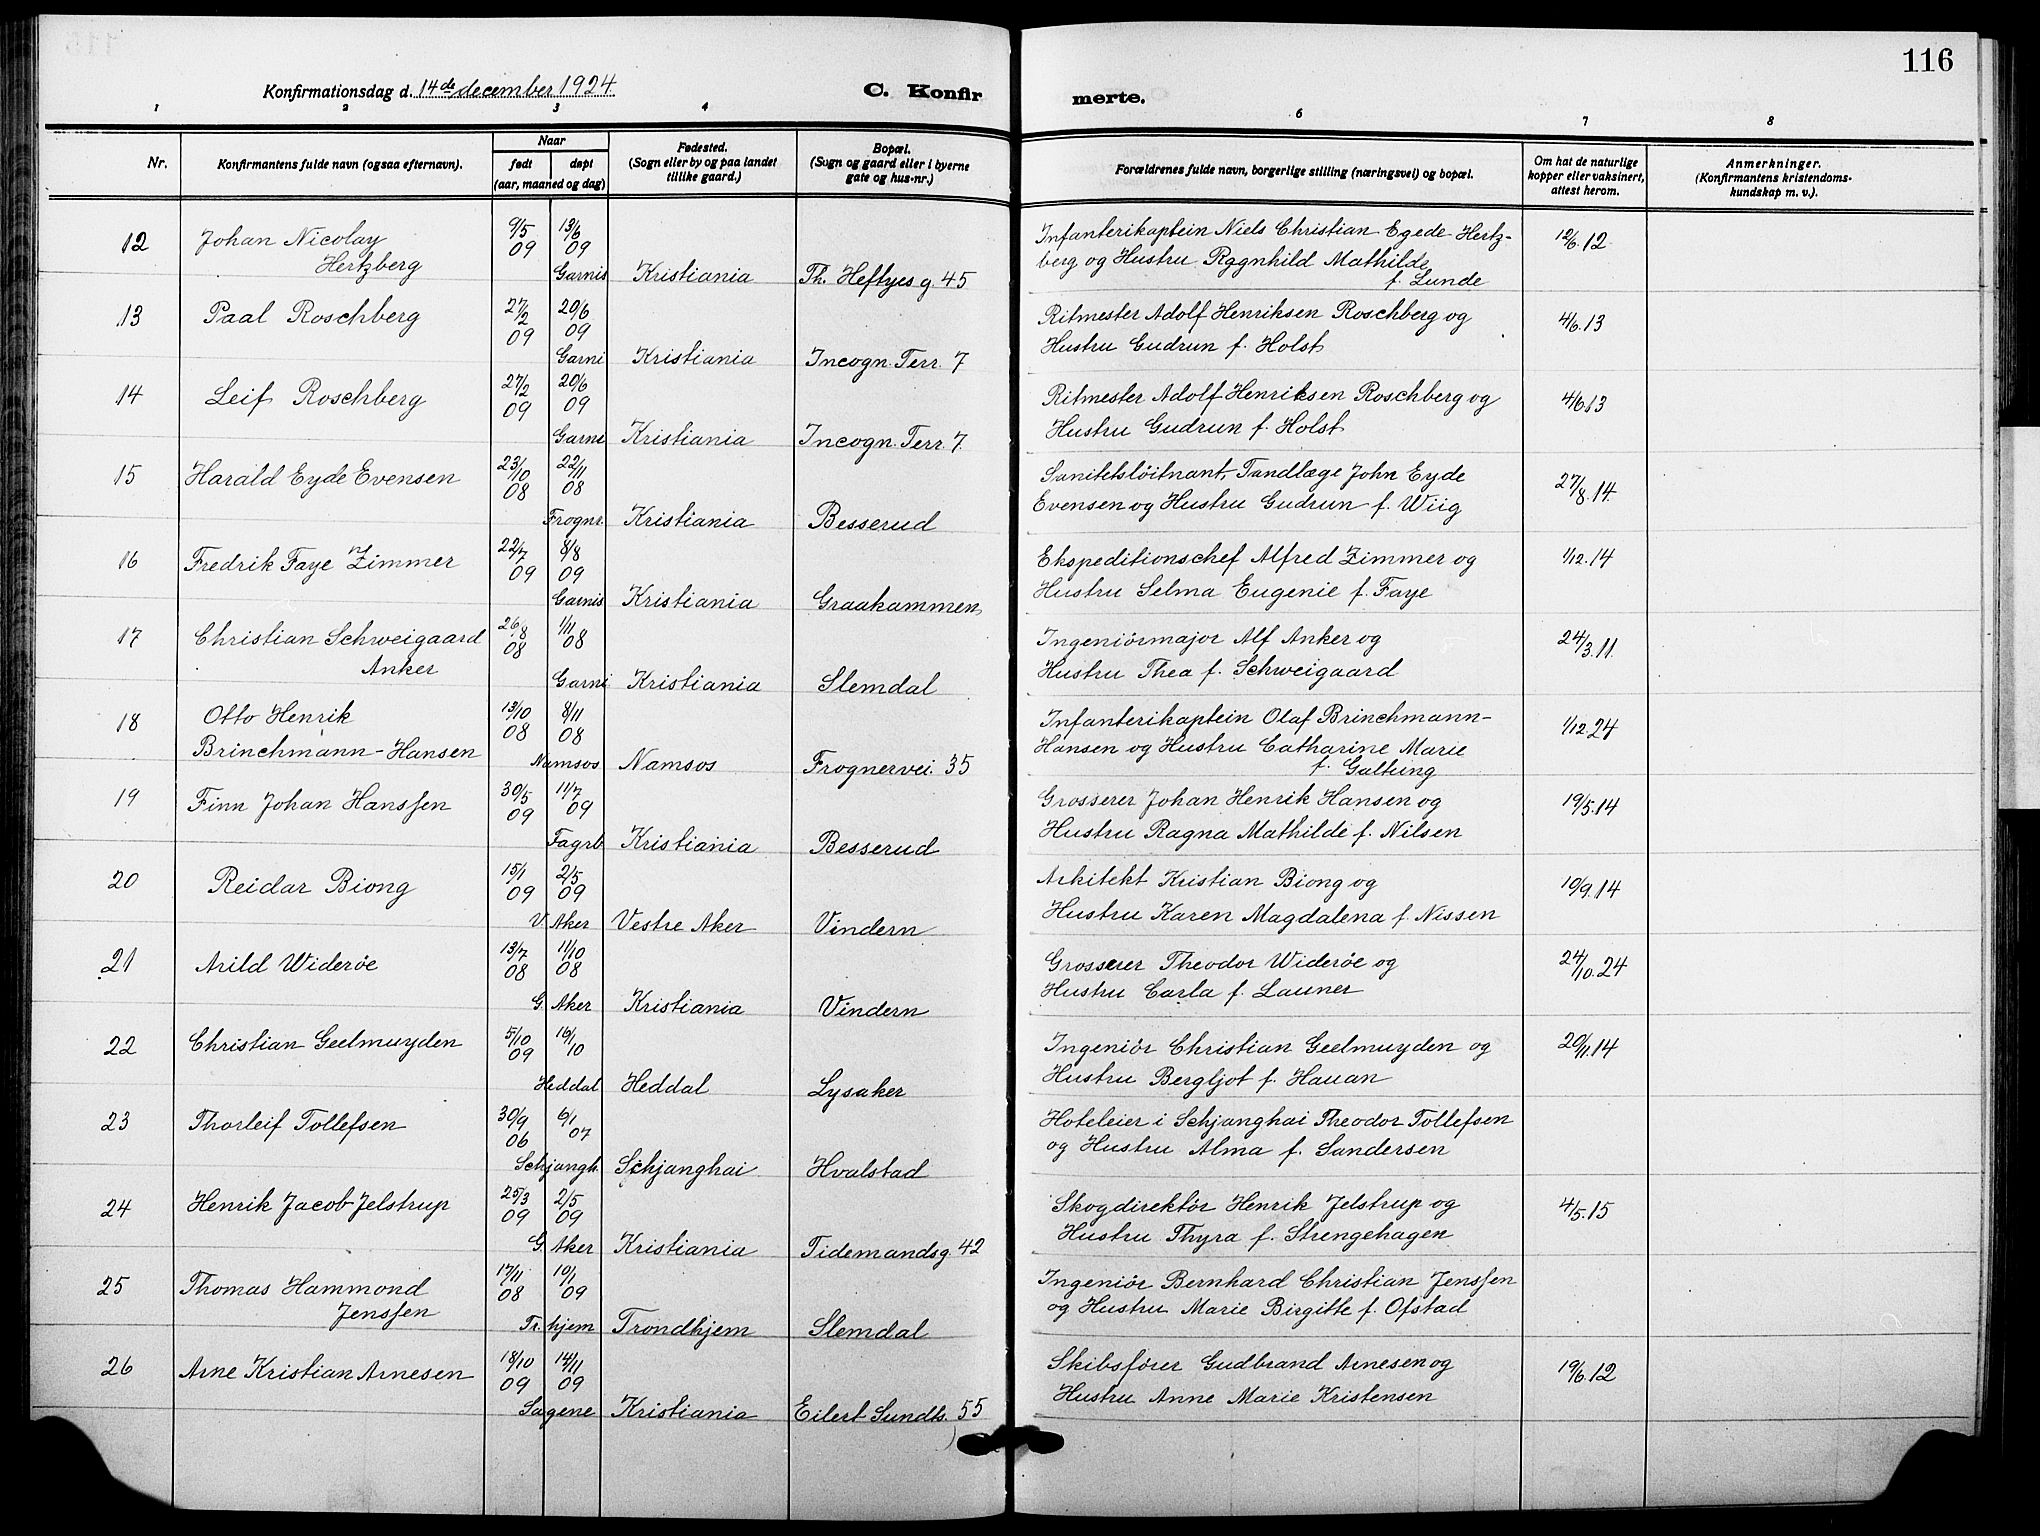 116
Konfirmationsdag d. 14de december 1924.
C. Konfirmerte.
1 2 3 4 6 7 8
Nr.
Konfirmantens fulde navn (ogsaa efternavn).
Naar
født døpt
(aar, maaned og dag)
Fødested.
(Sogn eller by og paa landet
tillike gaard.)
Bopæl.
(Sogn og gaard eller i byerne
gate og hus-nr.)
Forældrenes fulde navn, borgerlige stilling (næringsvei) og bopæl.
Om hat de naturlige
kopper eller vaksinert,
attest herom.
Anmerkninger.
(Konfirmantens kristendoms-
kundskap m. v.).
12 Johan Nicolay 9/5 13/6 Infanterikaptein Niels Christian Egede Hertz- 12/6.12
Hertzberg 09 09 berg og Hustru Ragnhild Mathilde
Garnis Kristiania Th. Heftyes g. 45 f. Lunde
13 Paal Roschberg 27/2 20/6 Ritmester Adolf Henriksen Roschberg og 4/6.13
09 09 Hustru Gudrun f. Holst
Garni Kristiania Incogn. Terr. 7
14 Leif Roschberg 27/2 20/6 Ritmester Adolf Henriksen Roschberg og 4/6.13
09 09 Hustru Gudrun f. Holst
Garni Kristiania Incogn. Terr. 7
15 Harald Eyde Evensen 23/10 22/11 Sanitetsløitnant, Tandlæge John Eyde 27/8.14
08 08 Evensen og Hustru Gudrun f. Wiig
Frogner. Kristiania Besserud
16 Fredrik Faye Zimmer 22/7 8/8 Ekspeditionschef Alfred Zimmer og 1/12.14
09 09 Hustru Selma Eugenie f. Faye
Garnis Kristiania Graakammen
17 Christian Schweigaard 26/8 1/11 Ingeniørmajor Alf Anker og 24/3.11.
Anker 08 08 Hustru Thea f. Schweigaard
Garni Kristiania Slemdal
18 Otto Henrik 13/10 8/11 Infanterikaptein Olaf Brinchmann- 1/12.24
Brinchmann-Hansen 08 08 Hansen og Hustru Catharine Marie
Namsos Namsos Frognervei. 35 f. Galtung
19 Finn Johan Hanssen 30/5 11/7 Grosserer Johan Henrik Hansen og 19/5.14
09 09 Hustru Ragna Mathilde f. Nilsen
Fagrb Kristiania Besserud
20 Reidar Biong 15/1 2/5 Arkitekt Kristian Biong og 10/9.14
09 09 Hustru Karen Magdalena f. Nissen
V. Aker Vestre Aker Vindern
21 Arild Widerøe 13/7 11/10 Grosserer Theodor Widerøe og 24/10.24
08 08 Hustru Carla f. Launer
G. Aker Kristiania Vindern
22 Christian Geelmuyden 5/10 16/10 Ingeniør Christian Geelmuyden og 20/11.14
09 Hustru Bergljot f. Hauan
Heddal Heddal Lysaker
23 Thorleif Tollefsen 30/9 6/1 Hoteleier i Schjanghai Theodor Tollefsen
06 07 og Hustru Alma f. Sandersen
Schjangh. Schjanghai Hvalstad
24 Henrik Jacob Jelstrup 25/3 2/5 Skogdirektør Henrik Jelstrup og 4/5.15
09 09 Hustru Thyra f. Strengehagen
G. Aker Kristiania Tidemandsg. 42
25 Thomas Hammond 17/11 10/1 Ingeniør Bernhard Christian Jenssen
Jenssen 08 09 og Hustru Marie Birgitte f. Ofstad
Tr.hjem Trondhjem Slemdal
26 Arne Kristian Arnesen 18/10 14/11 Skibsfører Gudbrand Arnesen og 19/6.12
09 09 Hustru Anne Marie Kristensen
Sagene Kristiania Eilert Sundts. 55